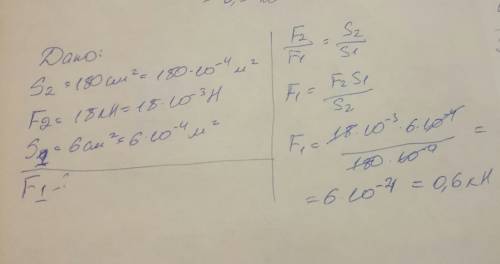 Дано:
S₂ = 180 см² = 180·10⁻⁴ м²
F₂ = 18 кН = 18·10⁻³ Н
S₁ = 6 см² = 6·10⁻⁴ м²
F₁ - ?
F₂/F₁ = S₂/S₁
F₁ = F₂S₁/S₂
F₁ = 18·10⁻³·6·10⁻⁴/180·10⁻⁴ =
= 6·10⁻⁴ = 0,6 кН